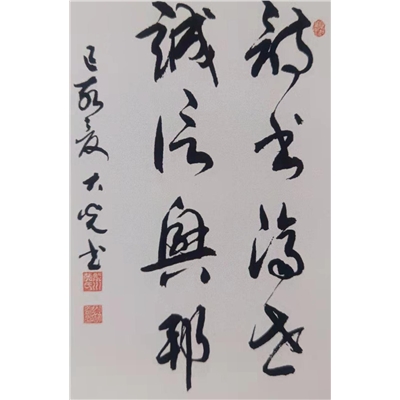 詩书濟世
誠信興邦
己亥夏大光书